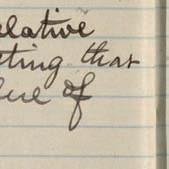 elative
ting that
of